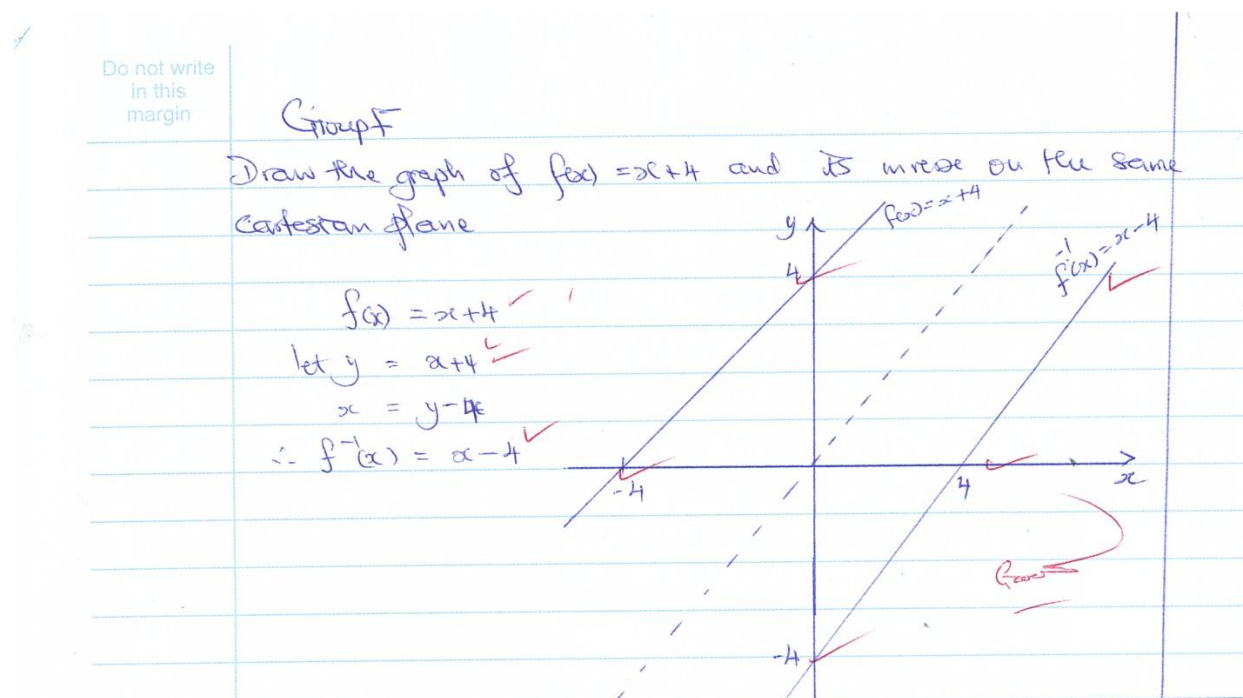 Do not write
in this
margin
Group F
Draw the graph of f(x) = x+4 and its inverse on the same
cartesian plane
f(x) = x+4
let y = x+4
x = y-4
∴ f⁻¹(x) = x-4
y
f(x)=x+4
f⁻¹(x)=x-4
4
-4
4
x
-4